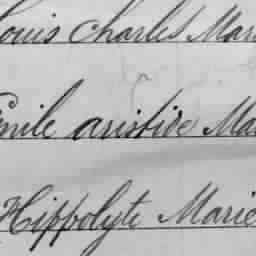 Louis Charles Mar
Emile aristide Ma
Hippolyte Marie